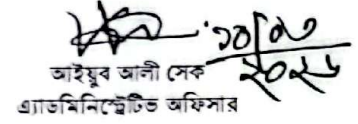 ১০/০৩
২০২৬
আইয়ুব আলী সেক
এ্যাডমিনিস্ট্রেটিভ অফিসার